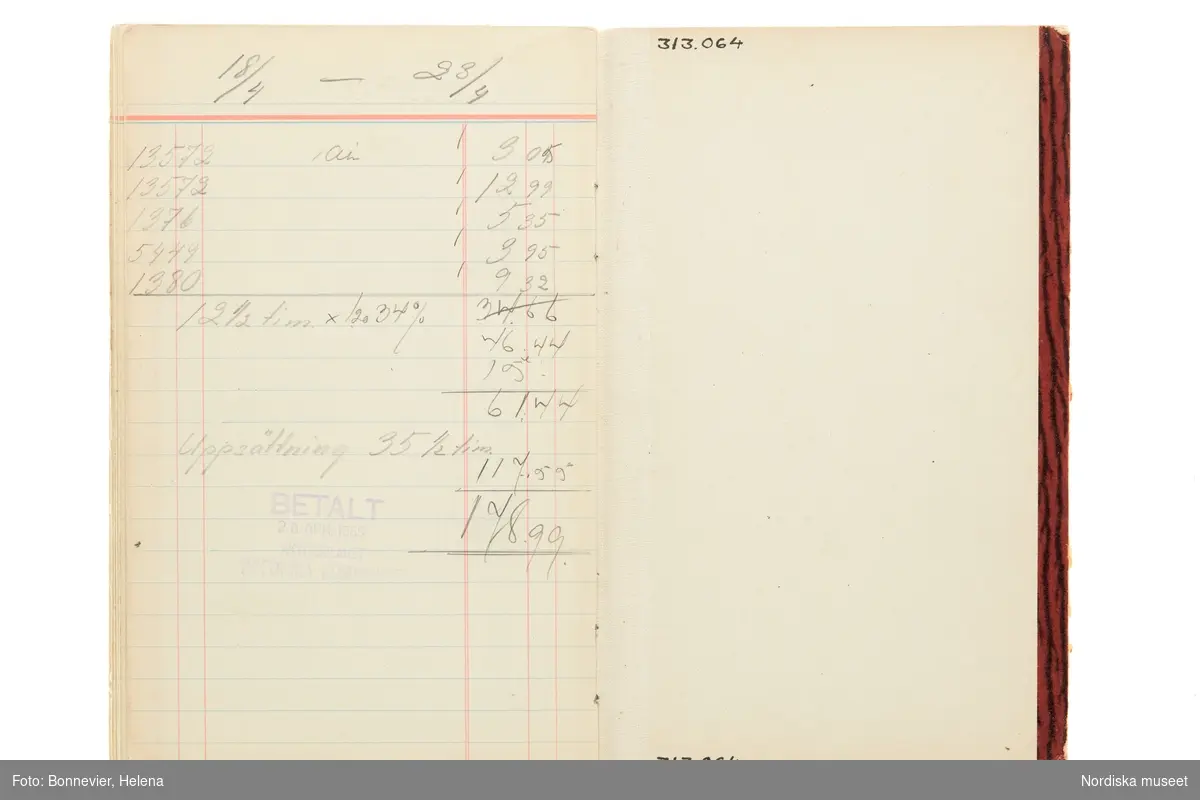 18/4 — 23/4
13572 1 3 05
13572 1 12.99
1376 1 5 35
5449 1 3 95
1380 1 9 32
12 1/2 tim. x 1.20 34% 34.66
46.44
15
61.44
Uppsättning 35 1/2 tim.
117.55
178.99
BETALT
313.064
313.064
Foto: Bonnevier, Helena
Nordiska museet